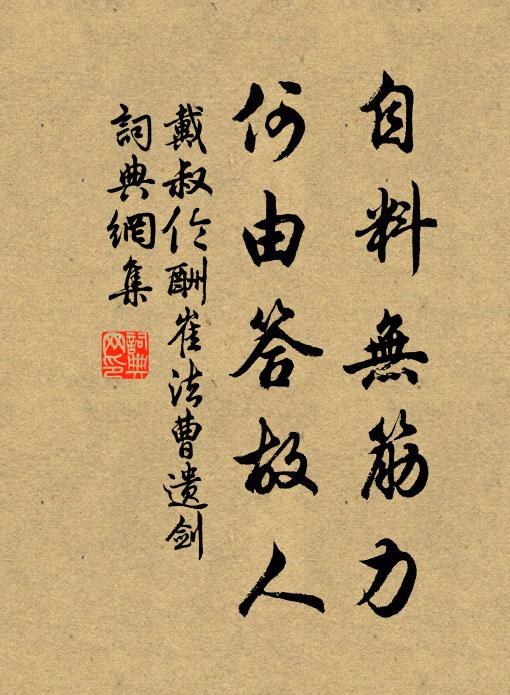 自料無筋力
何由答故人
戴叔伦酬崔法曹遗剑
詞典網集
詞典网印